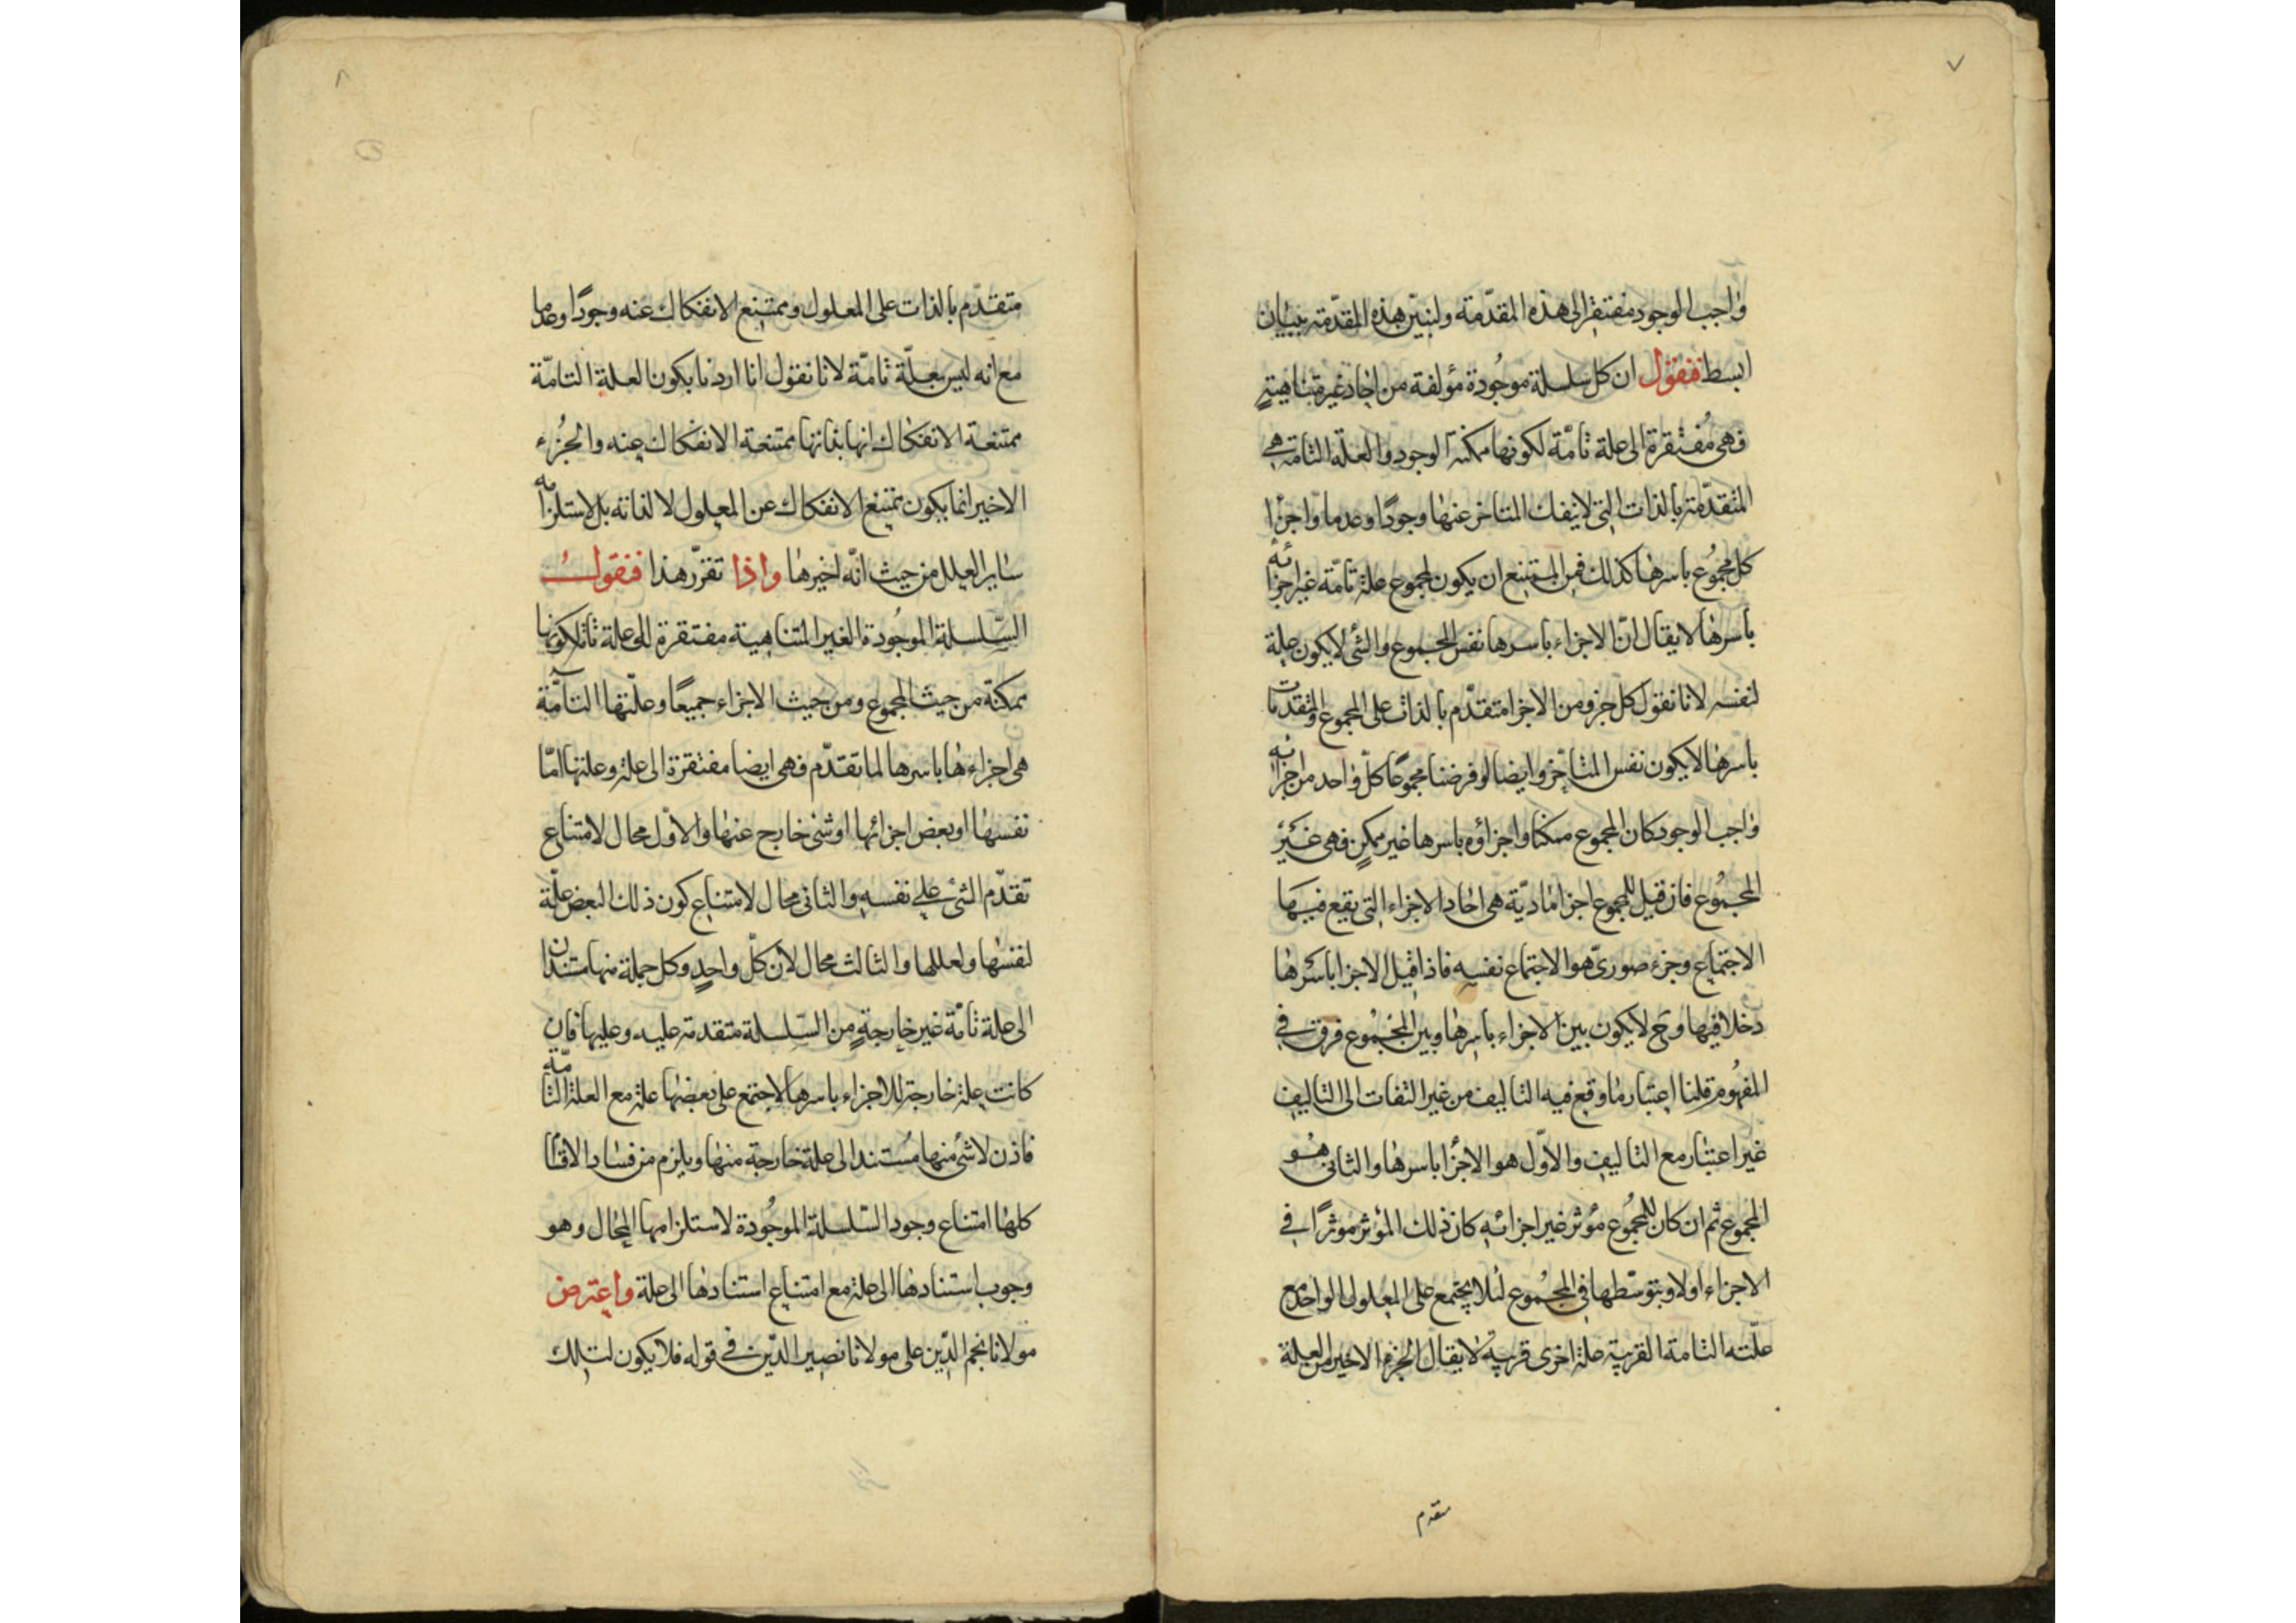 ٧
واجب الوجود مفتقرا الى هذه المقدّمة ولنبيّن هذه المقدّمة ببيان
ابسط فنقول ان كل سلسلة موجُودة مؤلفة من احاد غير متناهيةٍ
فهى مُفتقرة الى علة تامّة لكونها ممكنة الوجود والعلة التامة هى
المتقدّمة بالذات التى لا ينفك المتاخر عنها وجودًا وعدما واجزا
كل مجمُوع باسرها كذلك فمن الممتنع ان يكون لمجموع علة تامّة غير اجزائه
باسرها لا يقال انّ الاجزاء باسرها نفس المجموع والشئ لا يكون علة
لنفسه لانا نقول كل جزو من الاجزا متقدّم بالذات على المجموع والمتقدمات
باسرها لا يكون نفس المتاخر وايضا لو فرضنا مجموعًا كلّ واحد من اجزائه
واجب الوجود كان المجموع ممكنا واجزاؤه باسرها غير ممكنٍ فهى غَيْر
المجمُوع فان قيل للمجموع اجزا مادّية هى احاد الاجزاء التى يقع فيها
الاجتماع وجزء صورىّ هو الاجتماع نفسه فاذا قيل الاجزا باسرها
دخلا فيها وح لا يكون بين الاجزاء باسرها وبين المجمُوع فرق فى
المفهُوم قلنا اعتبار ما وقع فيه التاليف من غير التفات الى التاليف
غير اعتبار مع التاليف والاوّل هو الاجزا باسرها والثانى هُو
المجمُوع ثم ان كان للمجمُوع مؤثر غير اجزائه كان ذلك المؤثر موثرًا فى
الاجزاء اولا وبتوسّطها فى المجمُوع لئلا يجتمع على المعلول الواحد مع
علّته التامة القريبة علة اخرى قريبة لا يقال الجزء الاخير من العلة
متقدم
٨
متقدّم بالذات على المعلول وممتنع الانفكاك عنه وجودًا وعدما
مع انه ليس بعلّة تامّة لانا نقول انا اردنا بكون العلة التامّة
ممتنعة الانفكاك انها بذاتها ممتنعة الانفكاك عنه والجُزء
الاخير انما يكون ممتنع الانفكاك عن المعلول لا لذاته بل لاستلزامه
ساير العلل من حيث انّه اخيرها واذا تقرّر هذا فنقول
السّلسلة الموجُودة الغير المتناهية مفتقرة الى علة تامة لكونها
ممكنة من حيث المجموع ومن حيث الاجزاء جميعًا وعلّتها التامّة
هى اجزاءها باسرها لما تقدّم فهى ايضا مفتقرة الى علة وعلتها امّا
نفسها او بعض اجزائها او شئ خارج عنها والاوّل محال لامتناع
تقدّم الشئ على نفسه والثانى محال لامتناع كون ذلك البعض علّة
لنفسها ولعللها والثالث محال لان كلّ واحدٍ وكل جملة منها مستندان
الى علة تامّة غير خارجةٍ من السّلسلة متقدمة عليه وعليها فان
كانت علة خارجة للاجزاء باسرها لاجتمع على بعضها علة مع العلة التامّة
فاذن لا شئ منها مُستند الى علة خارجة منها ويلزم من فساد الاقسام
كلها امتناع وجود السّلسلة الموجُودة لاستلزامها المحال وهو
وجوب استنادها الى علة مع امتناع استنادها الى علة واعترض
مولانا نجم الدّين على مولانا نصير الدّين فى قوله فلا يكون لتلك